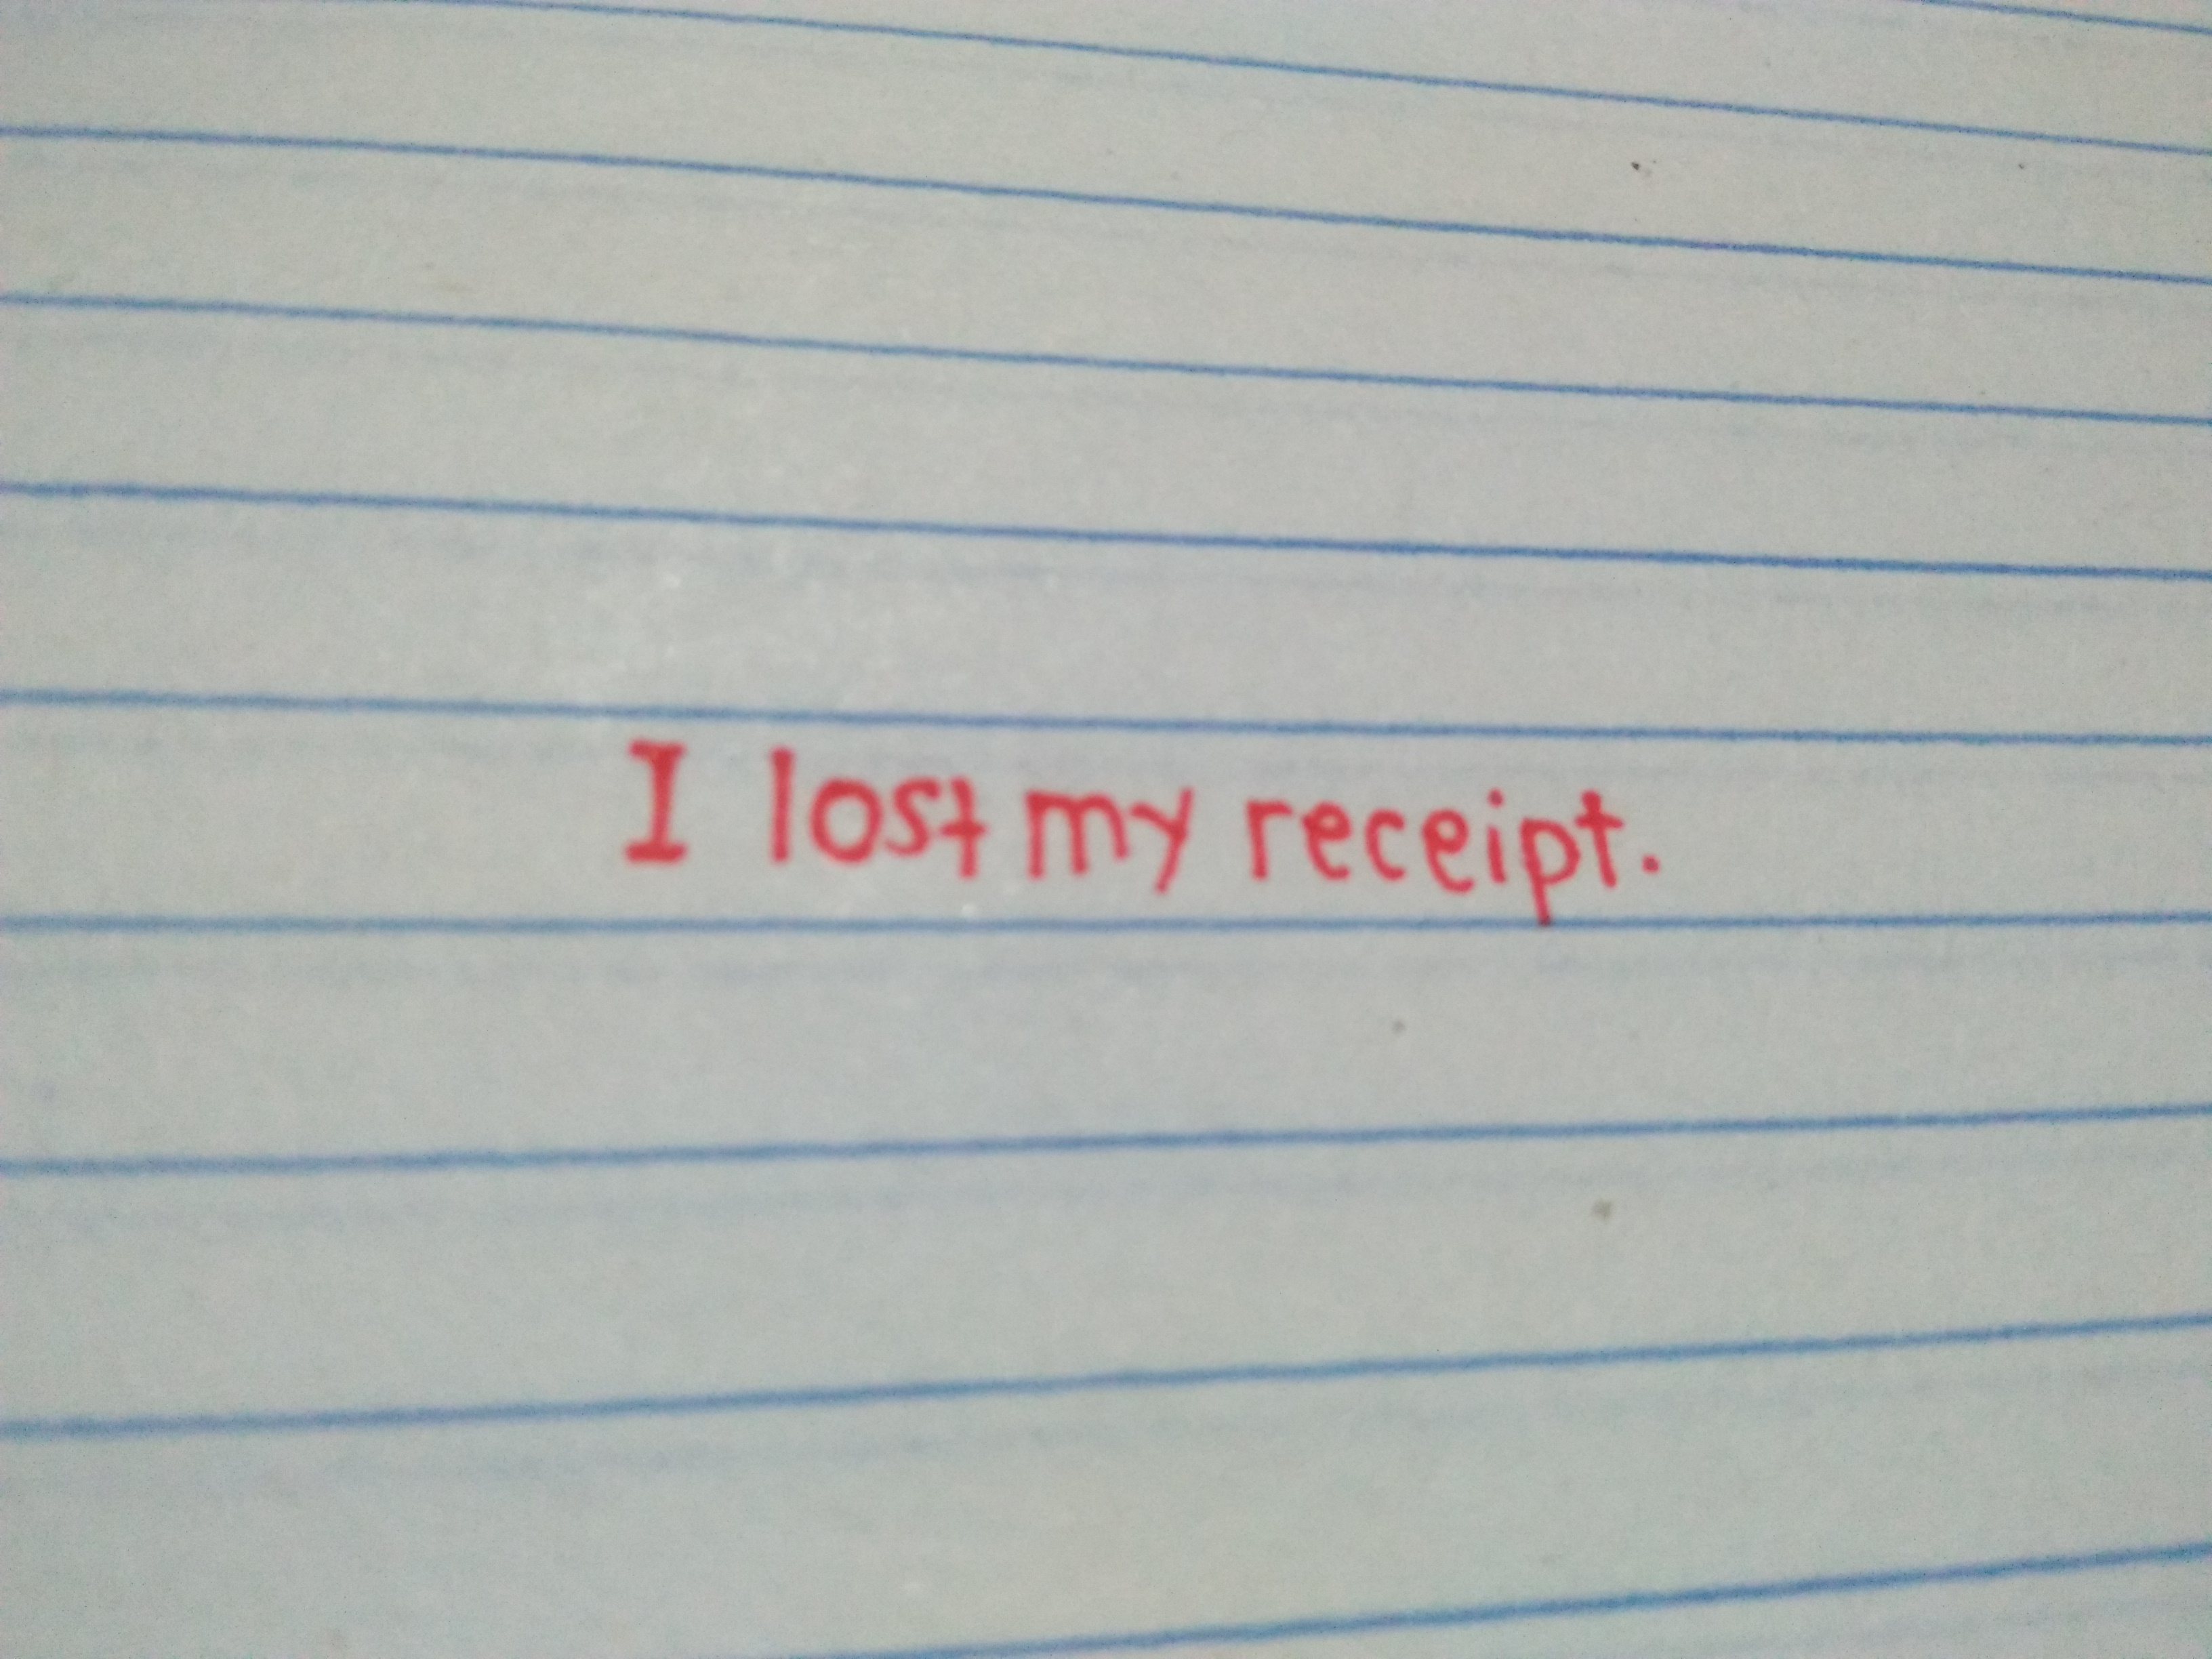 I lost my receipt.